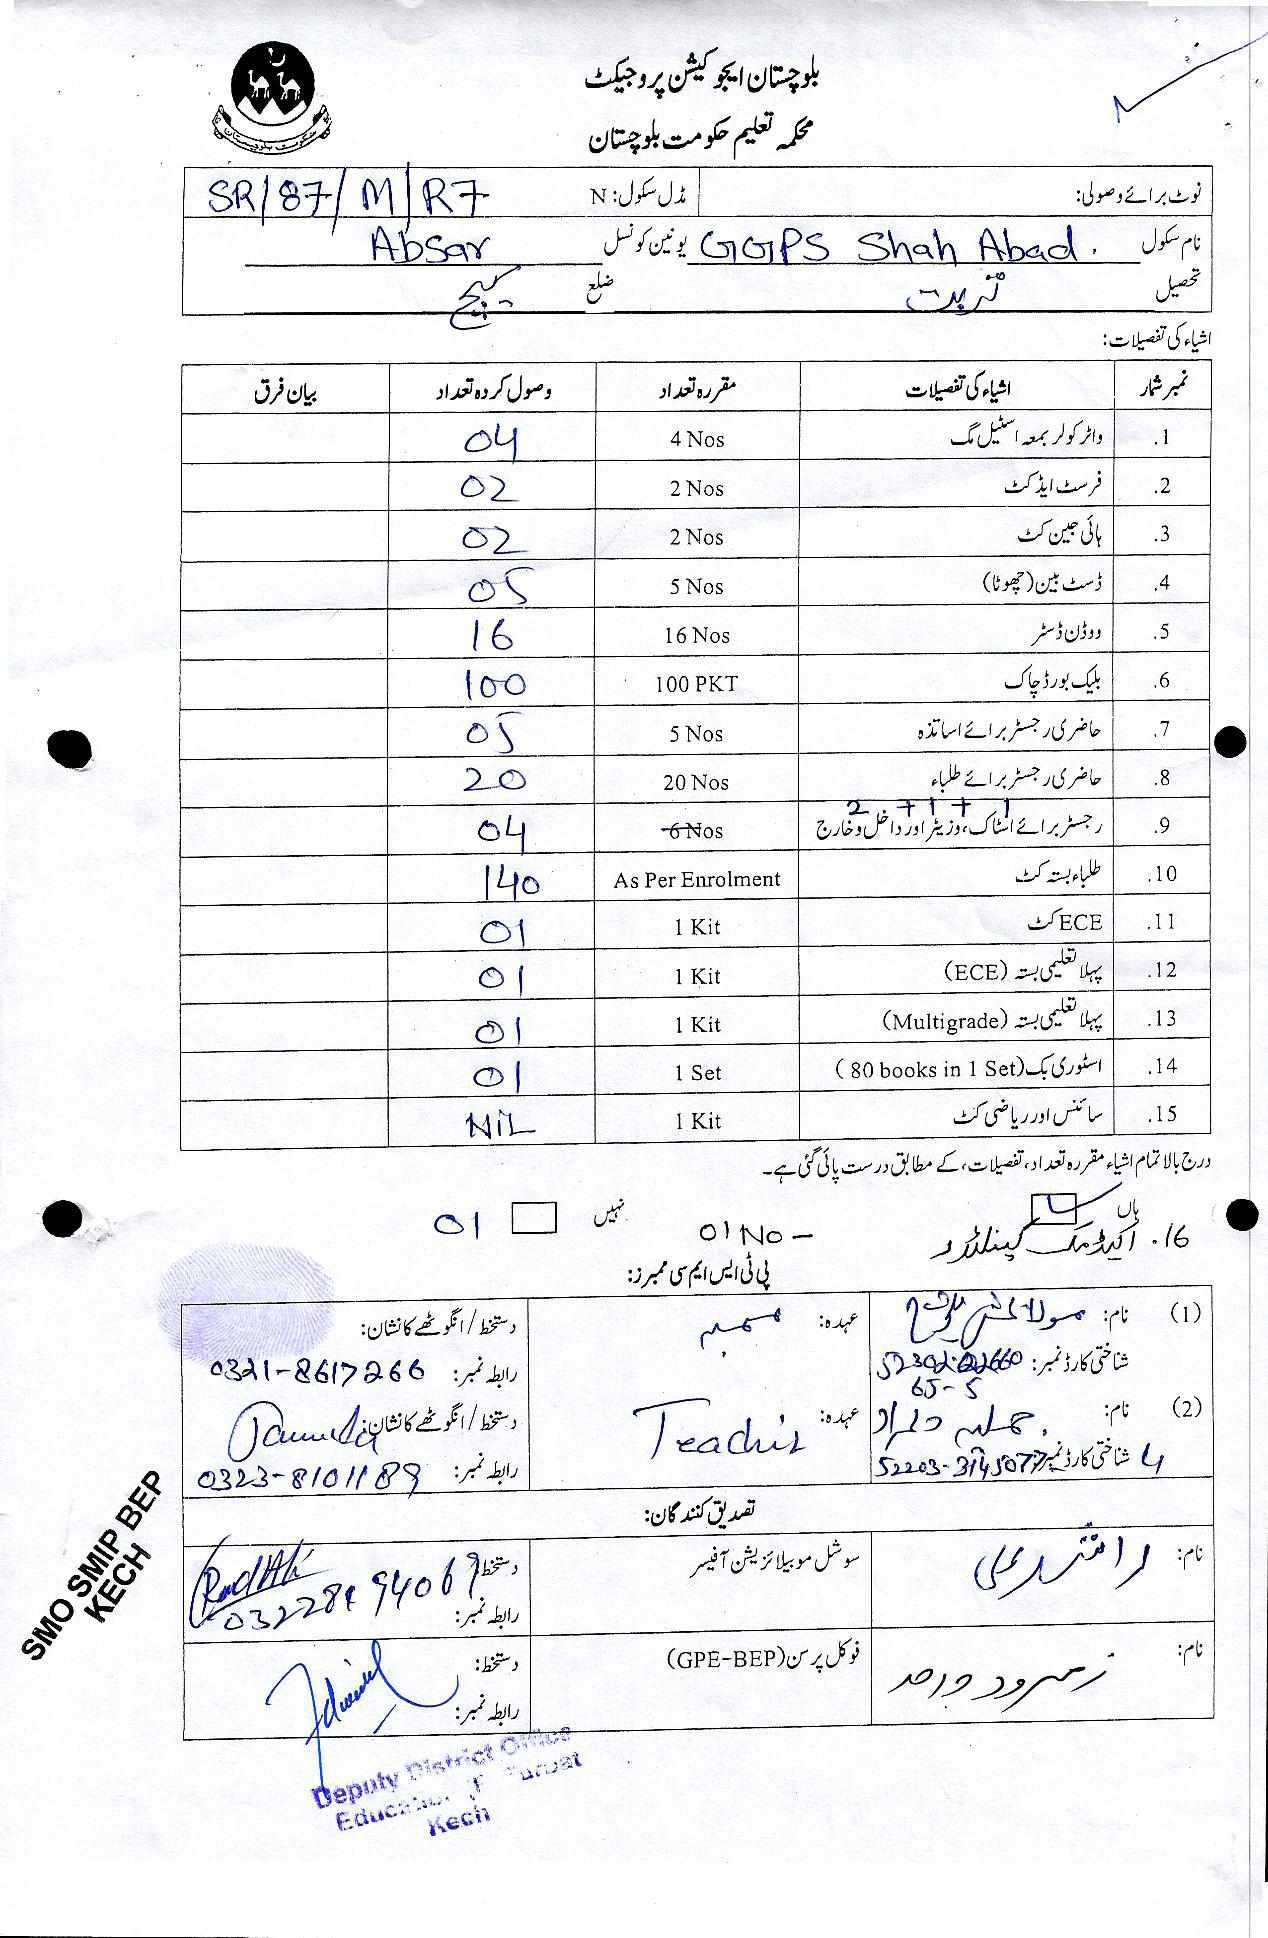 بلوچستان ایجوکیشن پروجیکٹ
محکمہ تعلیم حکومت بلوچستان
حکومت بلوچستان
نوٹ برائے وصولی: مڈل سکول: N SR/87/M/R7
نام سکول GGPS Shah Abad. یونین کونسل Absar
تحصیل تربت ضلع کیچ
اشیاء کی تفصیلات:
نمبر شمار اشیاء کی تفصیلات مقررہ تعداد وصول کردہ تعداد بیان فرق
.1 واٹر کولر بمعہ اسٹیل مگ 4 Nos 04
.2 فرسٹ ایڈ کٹ 2 Nos 02
.3 ہائی جین کٹ 2 Nos 02
.4 ڈسٹ بین (چھوٹا) 5 Nos 05
.5 ووڈن ڈسٹر 16 Nos 16
.6 بلیک بورڈ چاک 100 PKT 100
.7 حاضری رجسٹر برائے اساتذہ 5 Nos 05
.8 حاضری رجسٹر برائے طلباء 20 Nos 20
2 + 1 + 1
.9 رجسٹر برائے اسٹاک، وزیٹر اور داخل و خارج 6 Nos 04
.10 طلباء بستہ کٹ As Per Enrolment 140
.11 ECE کٹ 1 Kit 01
.12 پہلا تعلیمی بستہ (ECE) 1 Kit 01
.13 پہلا تعلیمی بستہ (Multigrade) 1 Kit 01
.14 اسٹوری بک (80 books in 1 Set) 1 Set 01
.15 سائنس اور ریاضی کٹ 1 Kit NiL
درج بالا تمام اشیاء مقررہ تعداد، تفصیلات، کے مطابق درست پائی گئی ہے۔
ہاں نہیں
16. اکیڈمک کیلنڈر 01 No - 01
پی ٹی ایس ایم سی ممبرز:
(1) نام: مولا بخش عہدہ: ممبر دستخط / انگوٹھے کا نشان:
شناختی کارڈ نمبر: رابطہ نمبر: 0321-8617266
65-5
(2) نام: عہدہ: دستخط / انگوٹھے کا نشان:
شناختی کارڈ نمبر: رابطہ نمبر: 0323-8101189
تصدیق کنندگان:
نام: راشد علی سوشل موبیلائزیشن آفیسر دستخط:
رابطہ نمبر:
نام: زمرود واحد فوکل پرسن (GPE-BEP) دستخط:
رابطہ نمبر:
SMO SMIP BEP
KECH
Deputy District Office
Education
Kech